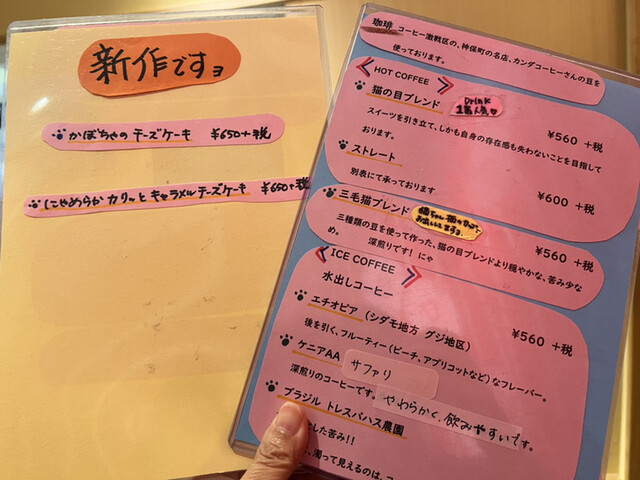 新作ですョ
かぼちゃのチーズケーキ ¥650+税
にゃめらかカリッとキャラメルチーズケーキ ¥650+税
珈琲 コーヒー激戦区の、神保町の名店、カンダコーヒーさんの豆を
使っております。
HOT COFFEE
猫の目ブレンド Drink 1番人気 ¥560 +税
スイーツを引き立て、しかも自身の存在感も失わないことを目指して
おります。
ストレート ¥600 +税
別表にて承っております
三毛猫ブレンド ¥560 +税
三種類の豆を使って作った、猫の目ブレンドより穏やかな、苦み少な
め。 深煎りです！にゃ
ICE COFFEE
水出しコーヒー ¥560 +税
エチオピア （シダモ地方 グジ地区）
後を引く、フルーティー（ピーチ、アプリコットなど）なフレーバー。
ケニアAA サファリ
深煎りのコーヒーです。やわらかく、飲みやすいです。
ブラジル トレスバハス農園
した苦み!!
、濁って見えるのは、コ